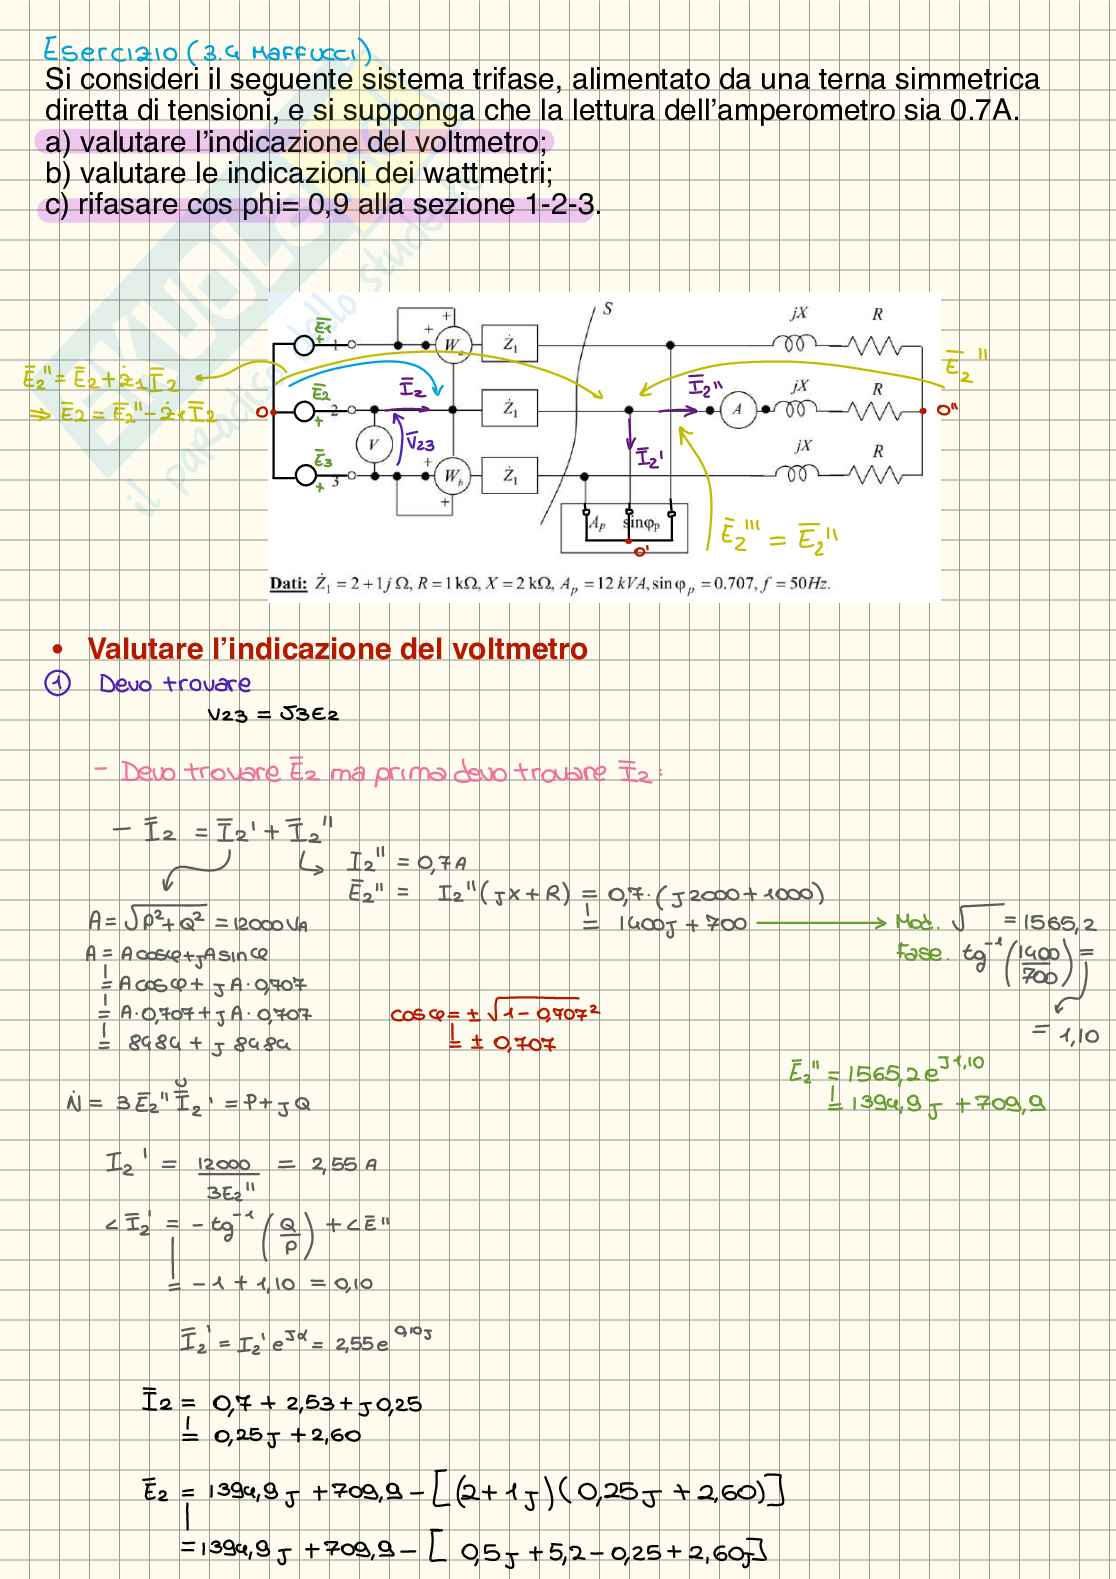 Esercizio (3.4 Maffucci)
Si consideri il seguente sistema trifase, alimentato da una terna simmetrica
diretta di tensioni, e si supponga che la lettura dell'amperometro sia 0.7A.
a) valutare l'indicazione del voltmetro;
b) valutare le indicazioni dei wattmetri;
c) rifasare cos phi= 0,9 alla sezione 1-2-3.
S
jX R
Ē1 + 1 + + W Ż1
Ē2" = Ē2 + ż1 Ī2
⇒ Ē2 = Ē2" - ż1 Ī2
Ē2"
0 Ē2 + 2 Ī2 Ż1 Ī2" A jX R 0"
V V̄23 Ī2'
Ē3 + 3 + Wb + Ż1 jX R
Ap sinφp
0'
Ē2''' = Ē2"
Dati: Ż1 = 2 + 1j Ω, R = 1 kΩ, X = 2 kΩ, Ap = 12 kVA, sin φp = 0.707, f = 50Hz.
• Valutare l'indicazione del voltmetro
1 Devo trovare
V23 = √3E2
- Devo trovare Ē2 ma prima devo trovare Ī2:
- Ī2 = Ī2' + Ī2"
I2" = 0,7A
Ē2" = I2"(jX+R) = 0,7·(j2000+1000)
= 1400j + 700 → Mod. √ = 1565,2
Fase. tg⁻¹(1400/700) =
= 1,10
A = √P²+Q² = 12000VA
A = Acosφ+jAsinφ
= Acosφ + jA·0,707
= A·0,707+jA·0,707
= 8484 + j8484
cosφ = ± √1-0,707²
= ± 0,707
Ē2" = 1565,2e^j1,10
= 1394,9j + 709,9
Ṅ = 3Ē2"Ī2' = P+jQ
I2' = 12000/3E2" = 2,55A
<Ī2' = - tg⁻¹(Q/P) + <Ē"
= -1 + 1,10 = 0,10
Ī2' = I2' e^jα = 2,55e^0,10j
Ī2 = 0,7 + 2,53 + j0,25
= 0,25j + 2,60
Ē2 = 1394,9j + 709,9 - [(2+1j)(0,25j + 2,60)]
= 1394,9j + 709,9 - [0,5j + 5,2 - 0,25 + 2,60j]